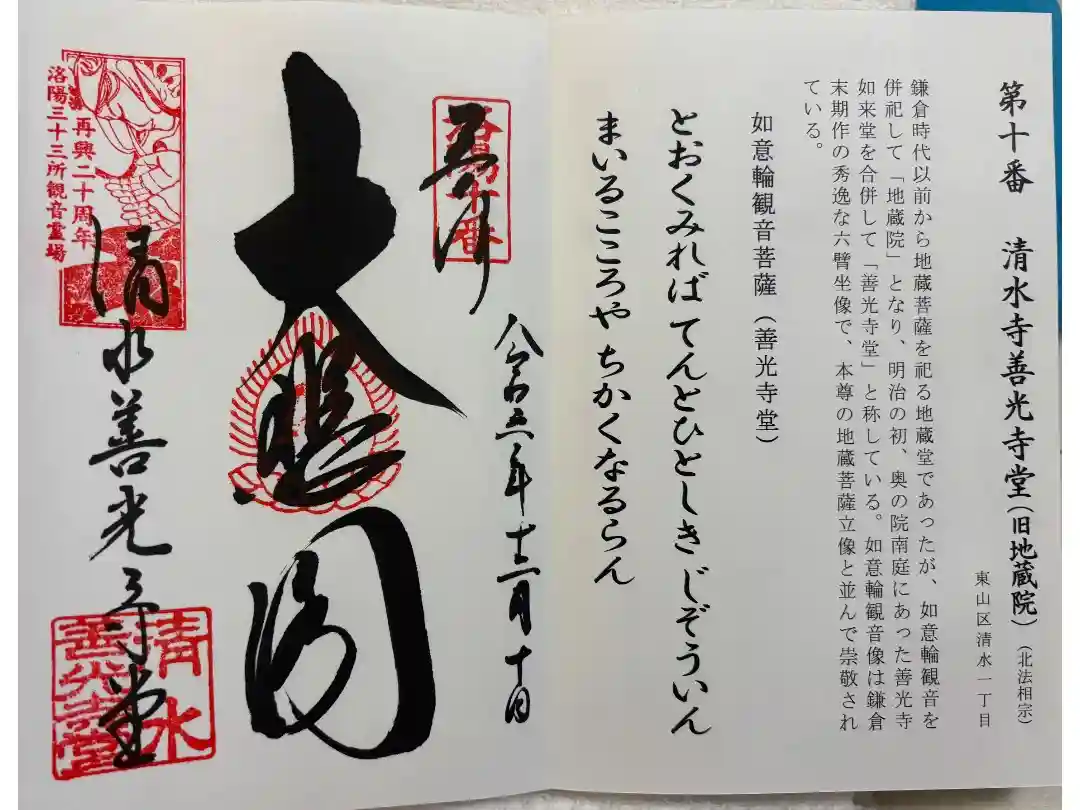 第十番 清水寺善光寺堂(旧地蔵院)(北法相宗)
東山区清水一丁目
鎌倉時代以前から地蔵菩薩を祀る地蔵堂であったが、如意輪観音を
併祀して「地蔵院」となり、明治の初、奥の院南庭にあった善光寺
如来堂を合併して「善光寺堂」と称している。如意輪観音像は鎌倉
末期作の秀逸な六臂坐像で、本尊の地蔵菩薩立像と並んで崇敬され
ている。
如意輪観音菩薩(善光寺堂)
とおくみれば てんとひとしき じぞういん
まいるこころや ちかくなるらん
奉拝
洛陽十番
令和五年十二月十日
大悲閣
再興二十周年
洛陽三十三所観音霊場
清水善光寺堂
清水
善光寺堂